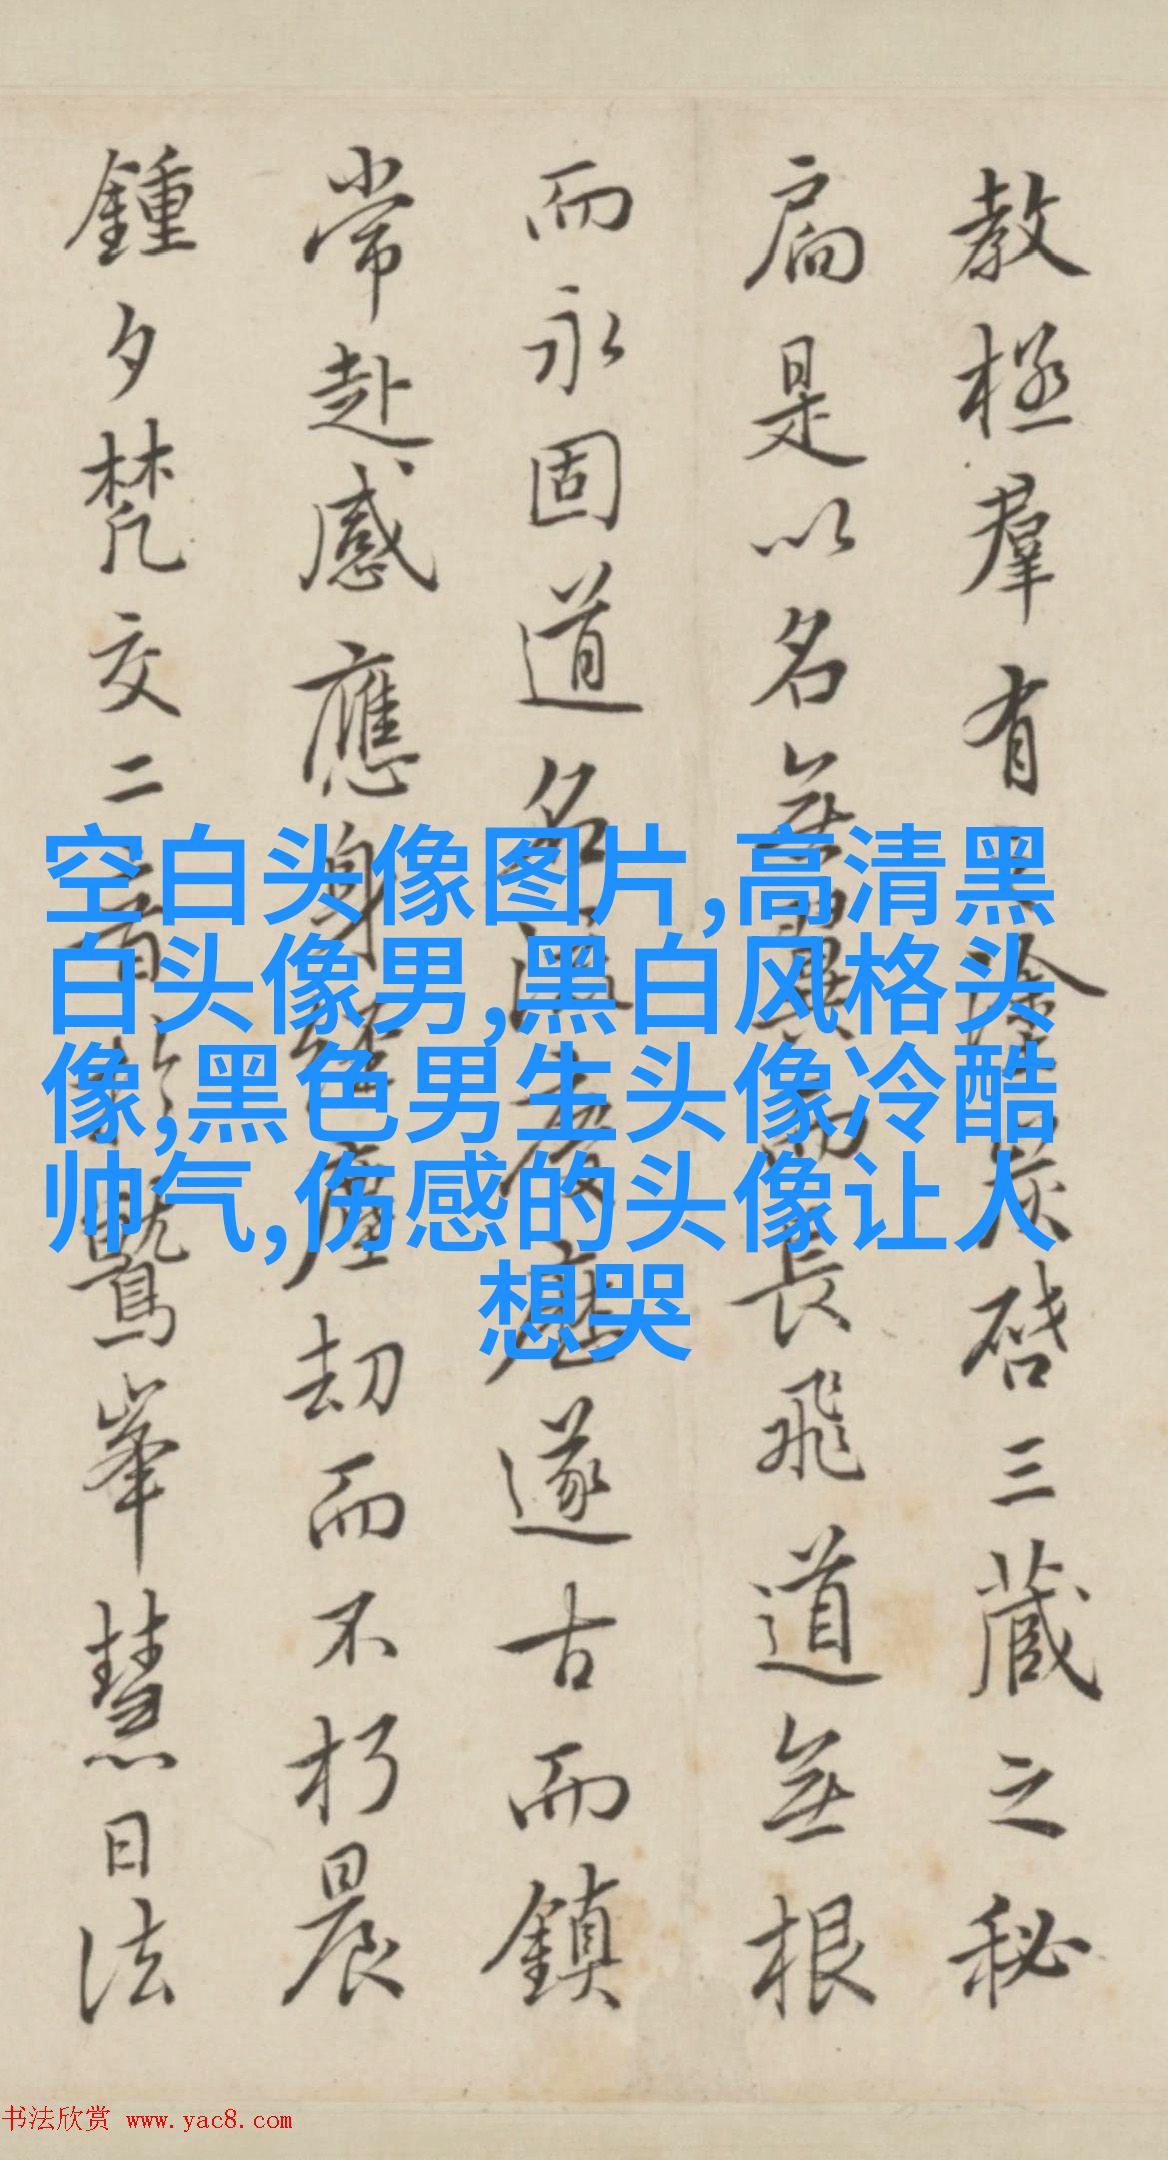 教拯羣有之塗炭啓三藏之秘
扃是以名無翼而長飛道無根
而永固道名流慶歷遂古而鎮
常赴感應身經塵劫而不朽晨
鍾夕梵交二音於鷲峯慧日法
空白头像图片,高清黑
白头像男,黑白风格头
像,黑色男生头像冷酷
帅气,伤感的头像让人
想哭
书法欣赏 www.yac8.com